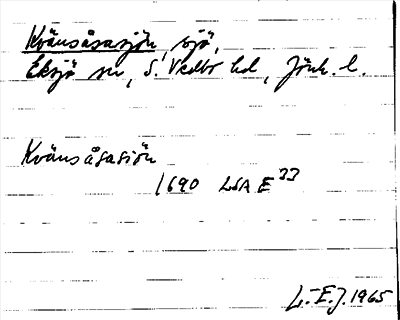 Kvänsåsasjön, sjö,
Eksjö sn, S. Vedbo hd, Jönk. l.
Kvänsåsasiön
1690 LSA E33
L.-E.J. 1965